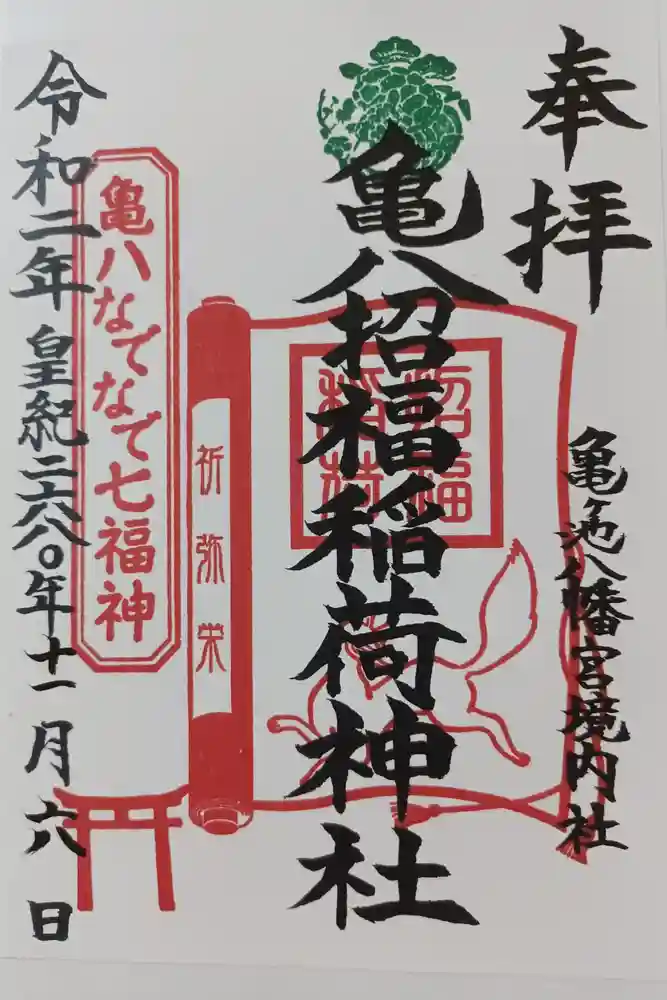 奉拝
亀ヶ池八幡宮境内社
亀八招福稲荷神社
招福
稲荷
祈弥栄
亀八なでなで七福神
令和二年皇紀二六八〇年十一月六日